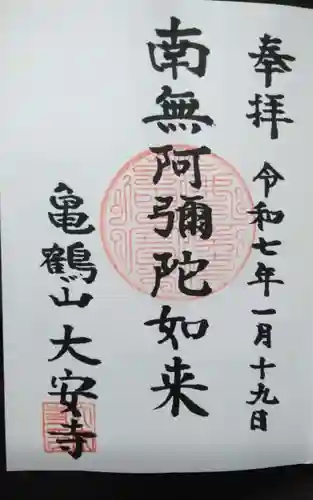 奉拝
令和七年一月十九日
南無阿彌陀如来
亀鶴山大安寺